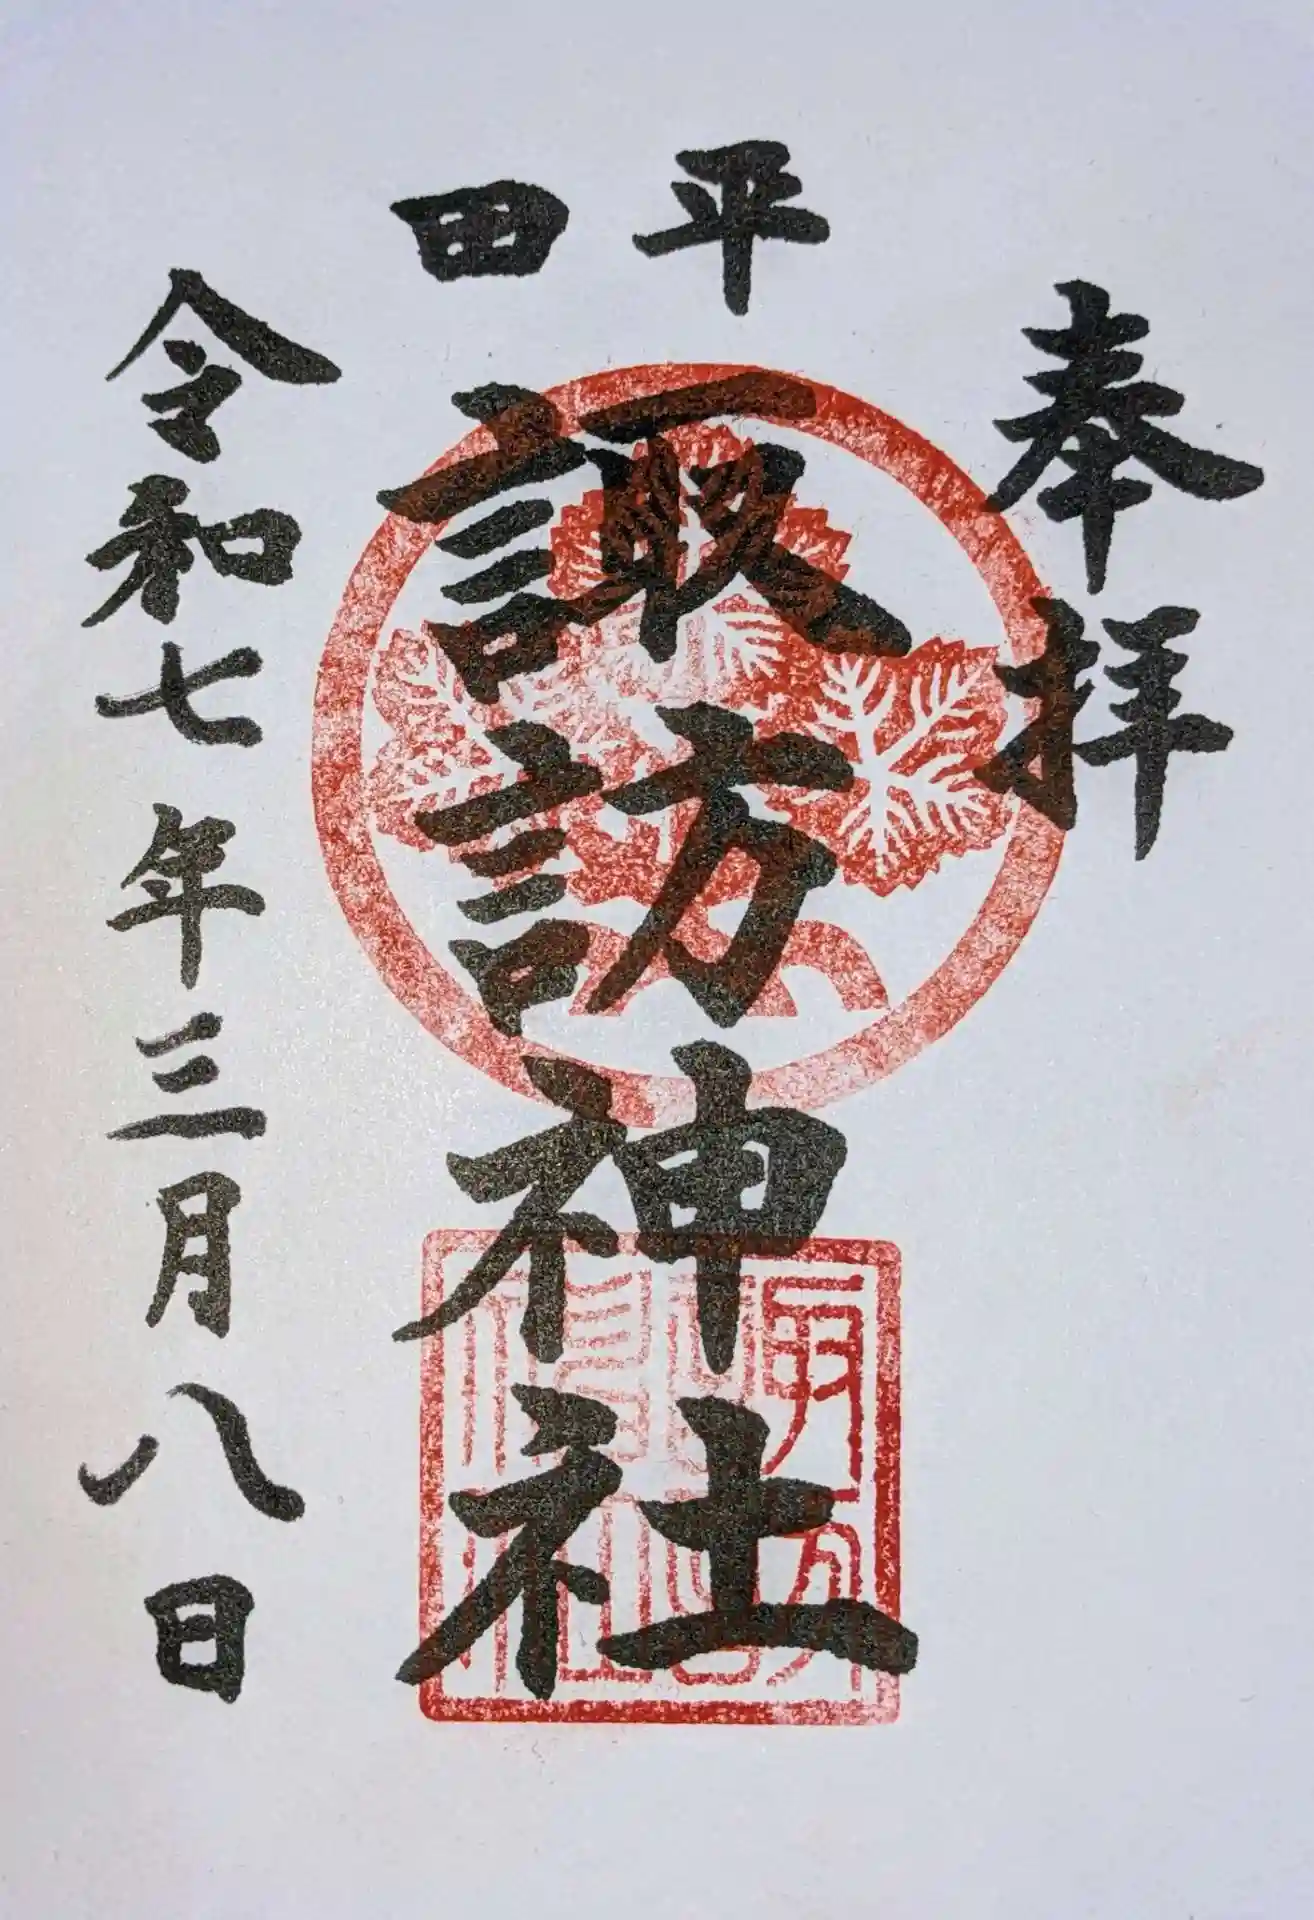 奉拝
平田
諏訪神社
諏訪神社
令和七年三月八日